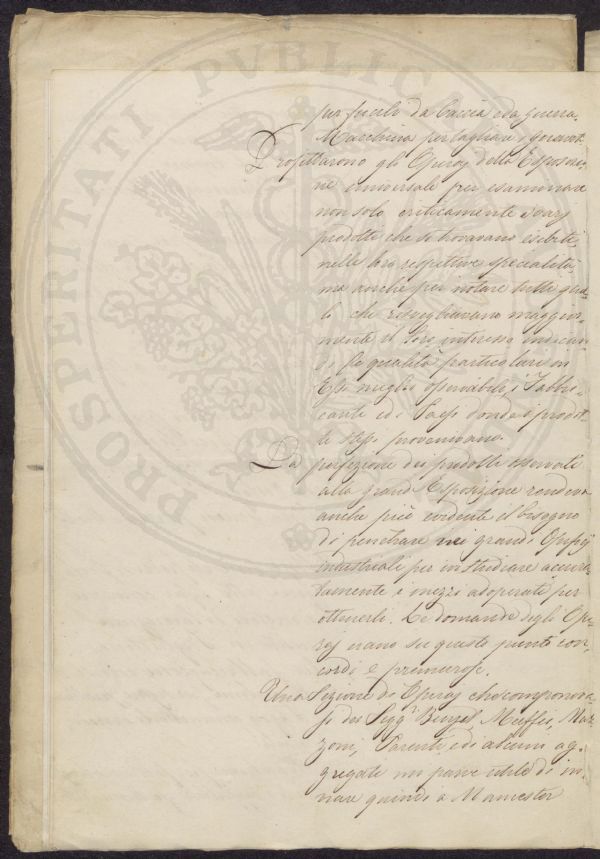 per fucili da Caccia e da guerra.
Macchina per tagliare i
Profittarono gli Operaj della Esposizio-
ne universale per esaminare
non solo criticamente i varj
prodotti che si trovavano esibiti
nelle loro respettive specialità,
ma anche per notare tutti quel-
li che risvegliavano maggior-
mente il loro interesse indican-
do le qualità particolari in
Essi meglio osservabili, i Fabbri-
canti ed i Paesi donde i prodot-
ti stessi provenivano.
La perfezione dei prodotti osservati
alla grande Esposizione rendeva
anche più evidente il bisogno
di penetrare nei grandi Opifizj
industriali per ivi studiare accura-
tamente i mezzi adoperati per
ottenerli. Le domande degli Ope-
raj erano su questo punto con-
cordi e premurose.
Una Sezione di Operaj che componeva-
si dei Sigg.ri Meffei, Mar-
zoni, Parenti, ed alcuni ag-
gregati mi parve utile di in-
viare quindi a Mancester
PROSPERITATI PUBLICAE